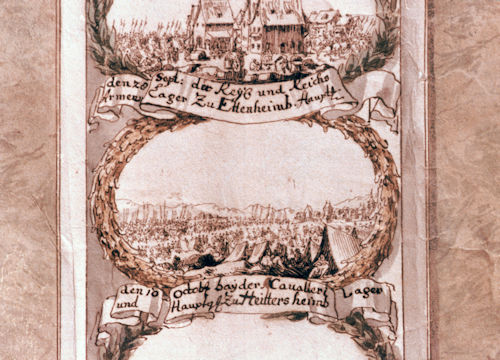 den 20 Sept: der Keyß und Reichs
Armeen Lager Zu Ettenheimb. Haupt
den 10 Octobr bay der Cavallerj Lager
und Hauptq zu Heittersheimb